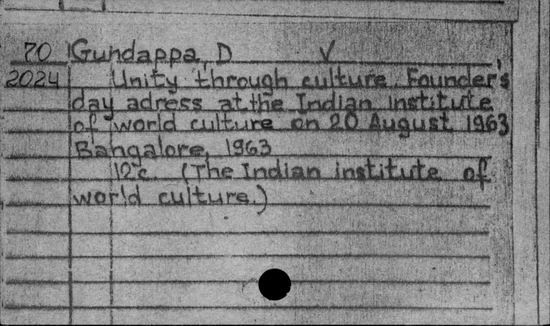 70 Gundappa, D V
2024 Unity through culture. Founder's
day adress at the Indian institute
of world culture on 20 August 1963
Bangalore, 1963
12°c. (The Indian institute of
world culture.)